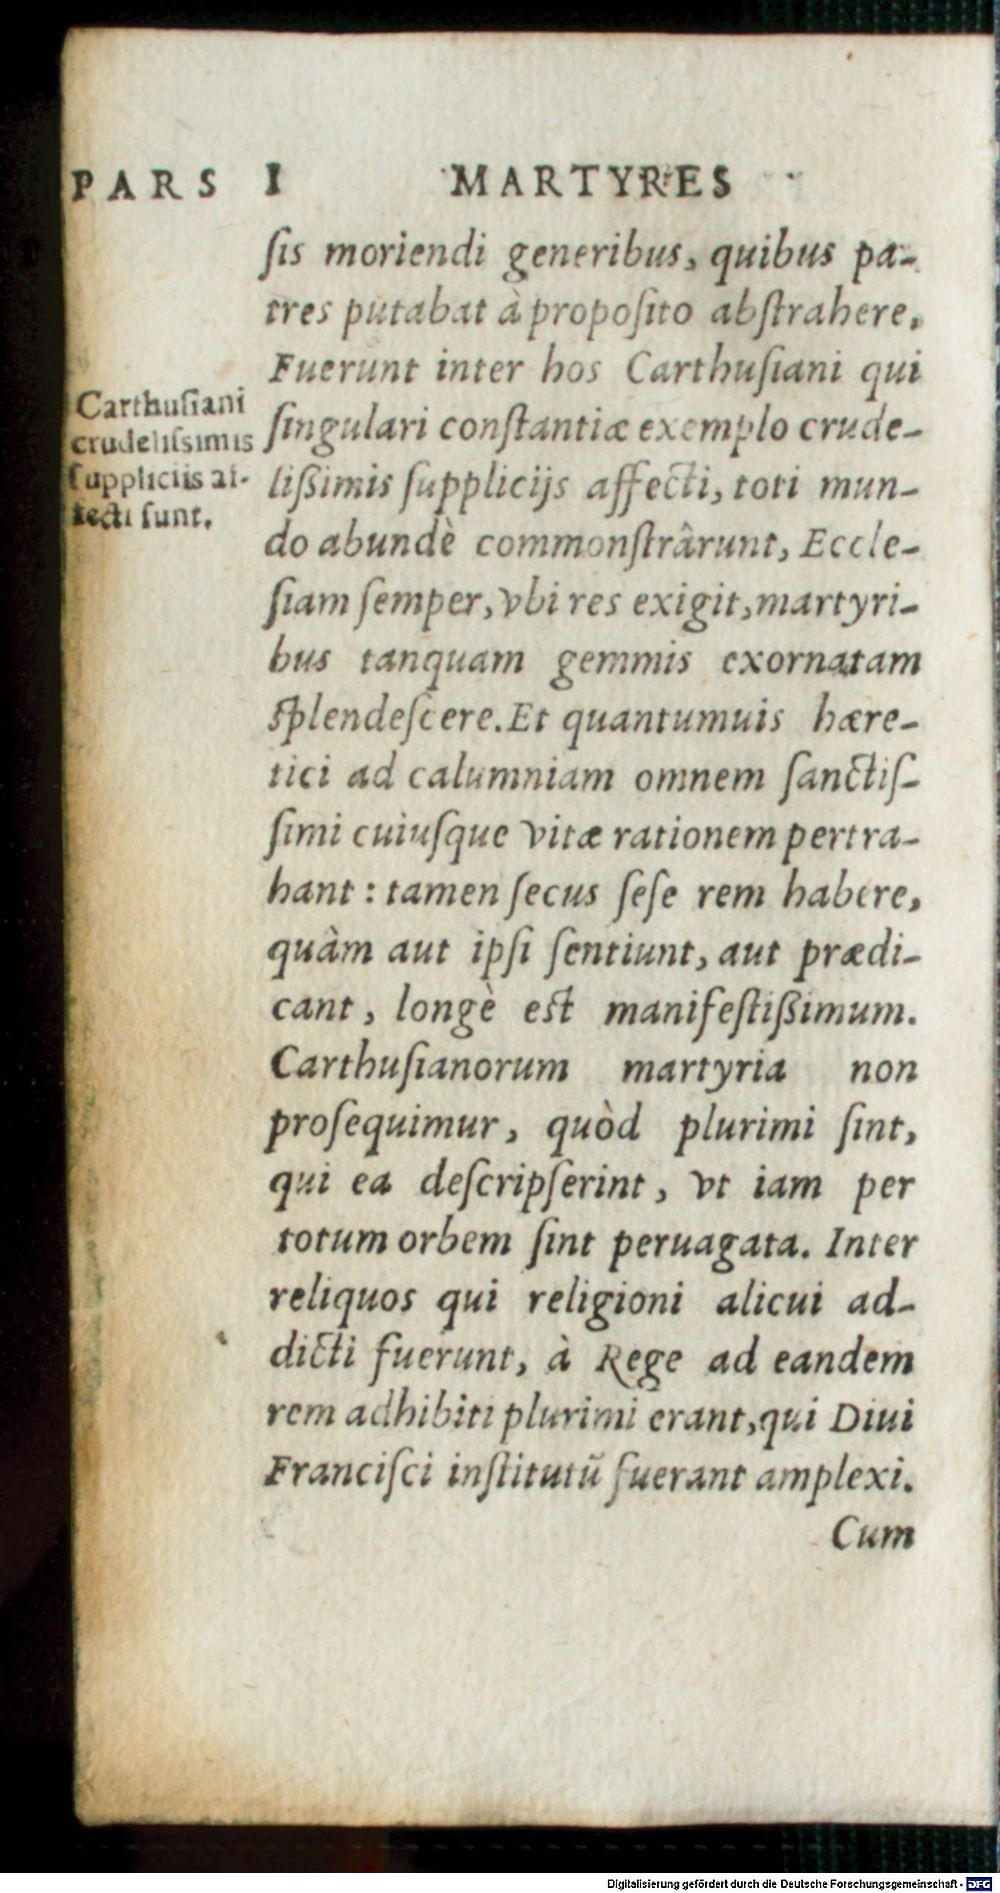 PARS I MARTYRES
ſis moriendi generibus, quibus pa-
tres putabat à propoſito abſtrahere.
Fuerunt inter hos Carthuſiani qui
Carthuſiani
crudeliſsimis
ſuppliciis af-
fecti ſunt.
ſingulari conſtantiæ exemplo crude-
lißimis ſupplicijs affecti, toti mun-
do abundè commonſtrârunt, Eccle-
ſiam ſemper, vbi res exigit, martyri-
bus tanquam gemmis exornatam
ſplendeſcere. Et quantumuis hære-
tici ad calumniam omnem ſanctiſ-
ſimi cuiuſque vitæ rationem pertra-
hant: tamen ſecus ſeſe rem habere,
quàm aut ipſi ſentiunt, aut prædi-
cant, longè eſt manifeſtißimum.
Carthuſianorum martyria non
proſequimur, quòd plurimi ſint,
qui ea deſcripſerint, vt iam per
totum orbem ſint peruagata. Inter
reliquos qui religioni alicui ad-
dicti fuerunt, à Rege ad eandem
rem adhibiti plurimi erant, qui Diui
Franciſci inſtitutū fuerant amplexi.
Cum
Digitalisierung gefördert durch die Deutsche Forschungsgemeinschaft - DFG